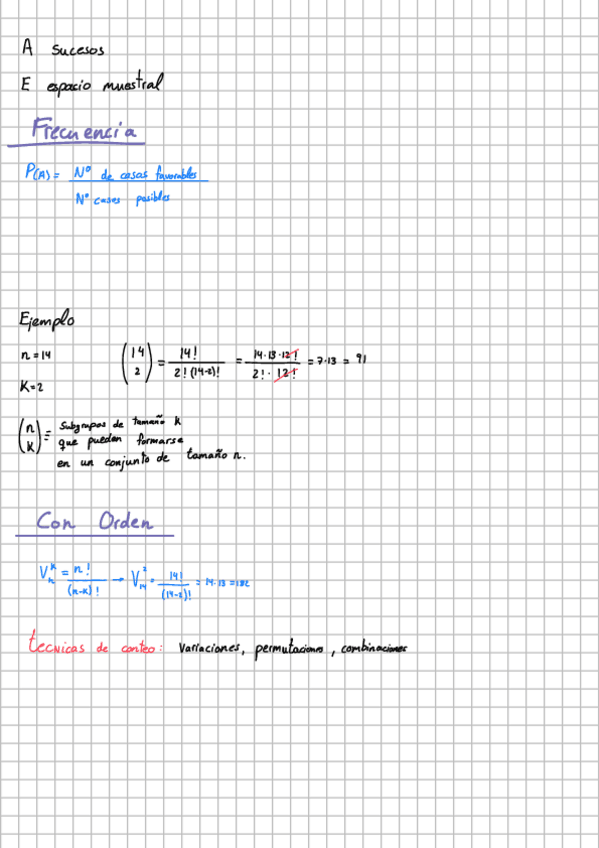 A sucesos
E espacio muestral
Frecuencia
P(A) = Nº de casos favorables / Nº cases posibles
Ejemplo
n = 14
K = 2
(14 2) = 14! / 2! (14-2)! = 14·13·12! / 2!·12! = 7·13 = 91
(n K) = Subgrupos de tamaño k
que pueden formarse
en un conjunto de tamaño n.
Con Orden
V_n^k = n! / (n-k)! → V_14^2 = 14! / (14-2)! = 14·13 = 182
tecnicas de conteo: Variaciones, permutaciones, combinaciones